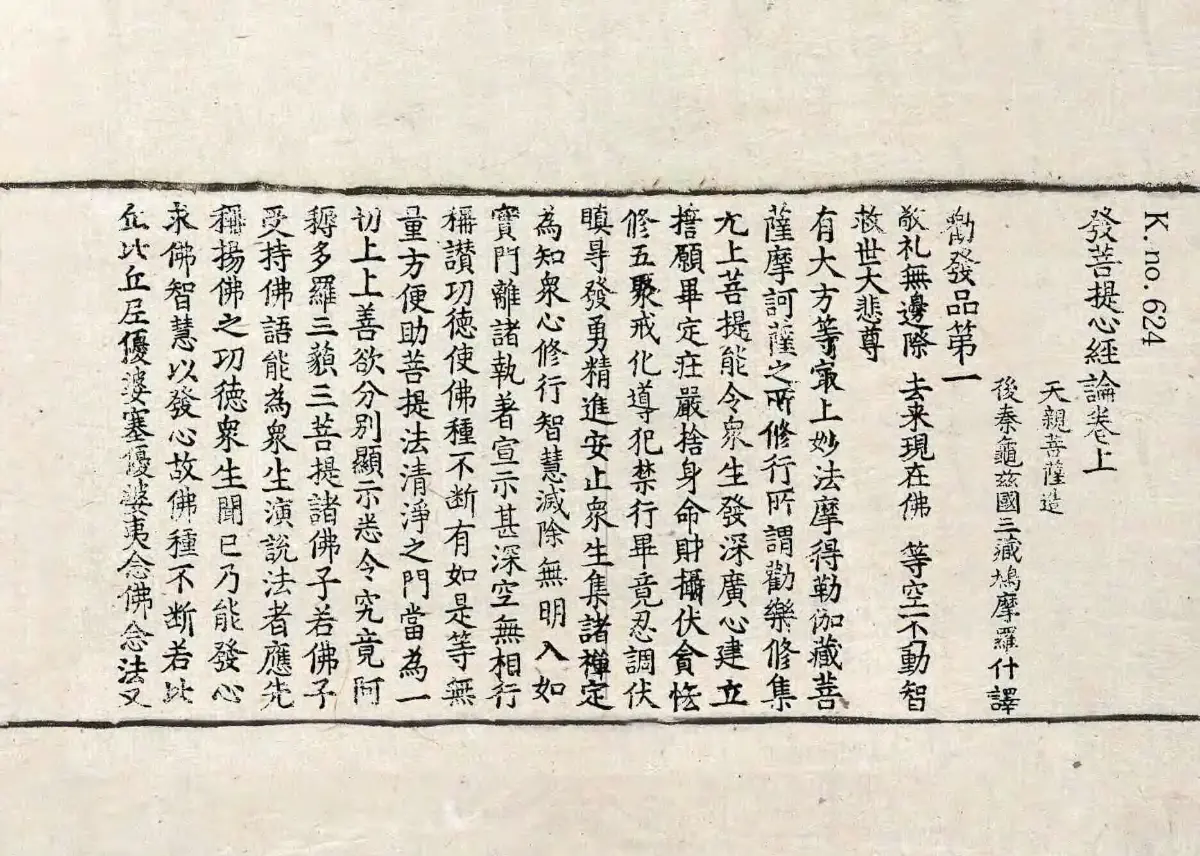 K. no. 624
發菩提心經論卷上
天親菩薩造
後秦龜兹國三藏鳩摩羅什譯
勸發品第一
敬礼無邊際 去来現在佛 等空不動智
救世大悲尊
有大方等冣上妙法摩得勒伽藏菩
薩摩訶薩之所修行所謂勸樂修集
无上菩提能令衆生發深廣心建立
擔願畢定莊嚴捨身命財攝伏貪恡
修五聚戒化導犯禁行畢竟忍調伏
瞋㝵發勇精進安止衆生集諸禪定
為知衆心修行智慧滅除無明入如
實門離諸執著宣示甚深空無相行
稱讃功德使佛種不断有如是等無
量方便助菩提法清淨之門當為一
切上上善欲分別顯示悉令究竟阿
耨多羅三藐三菩提諸佛子若佛子
受持佛語能為衆生演說法者應先
稱揚佛之功徳衆生聞已乃能發心
求佛智慧以發心故佛種不断若比
丘比丘尼優婆塞優婆夷念佛念法又